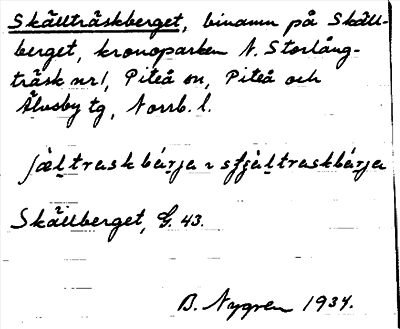 Skällträskberget, binamn på Skäll-
berget, kronoparken N. Storlång-
träsk nr 1, Piteå sn, Piteå och
Älvsby tg, Norrb. l.
jȧl̠traskbȧrja ~ sfjȧl̠traskbȧrja
Skällberget, G. 43.
B. Nygren 1934.